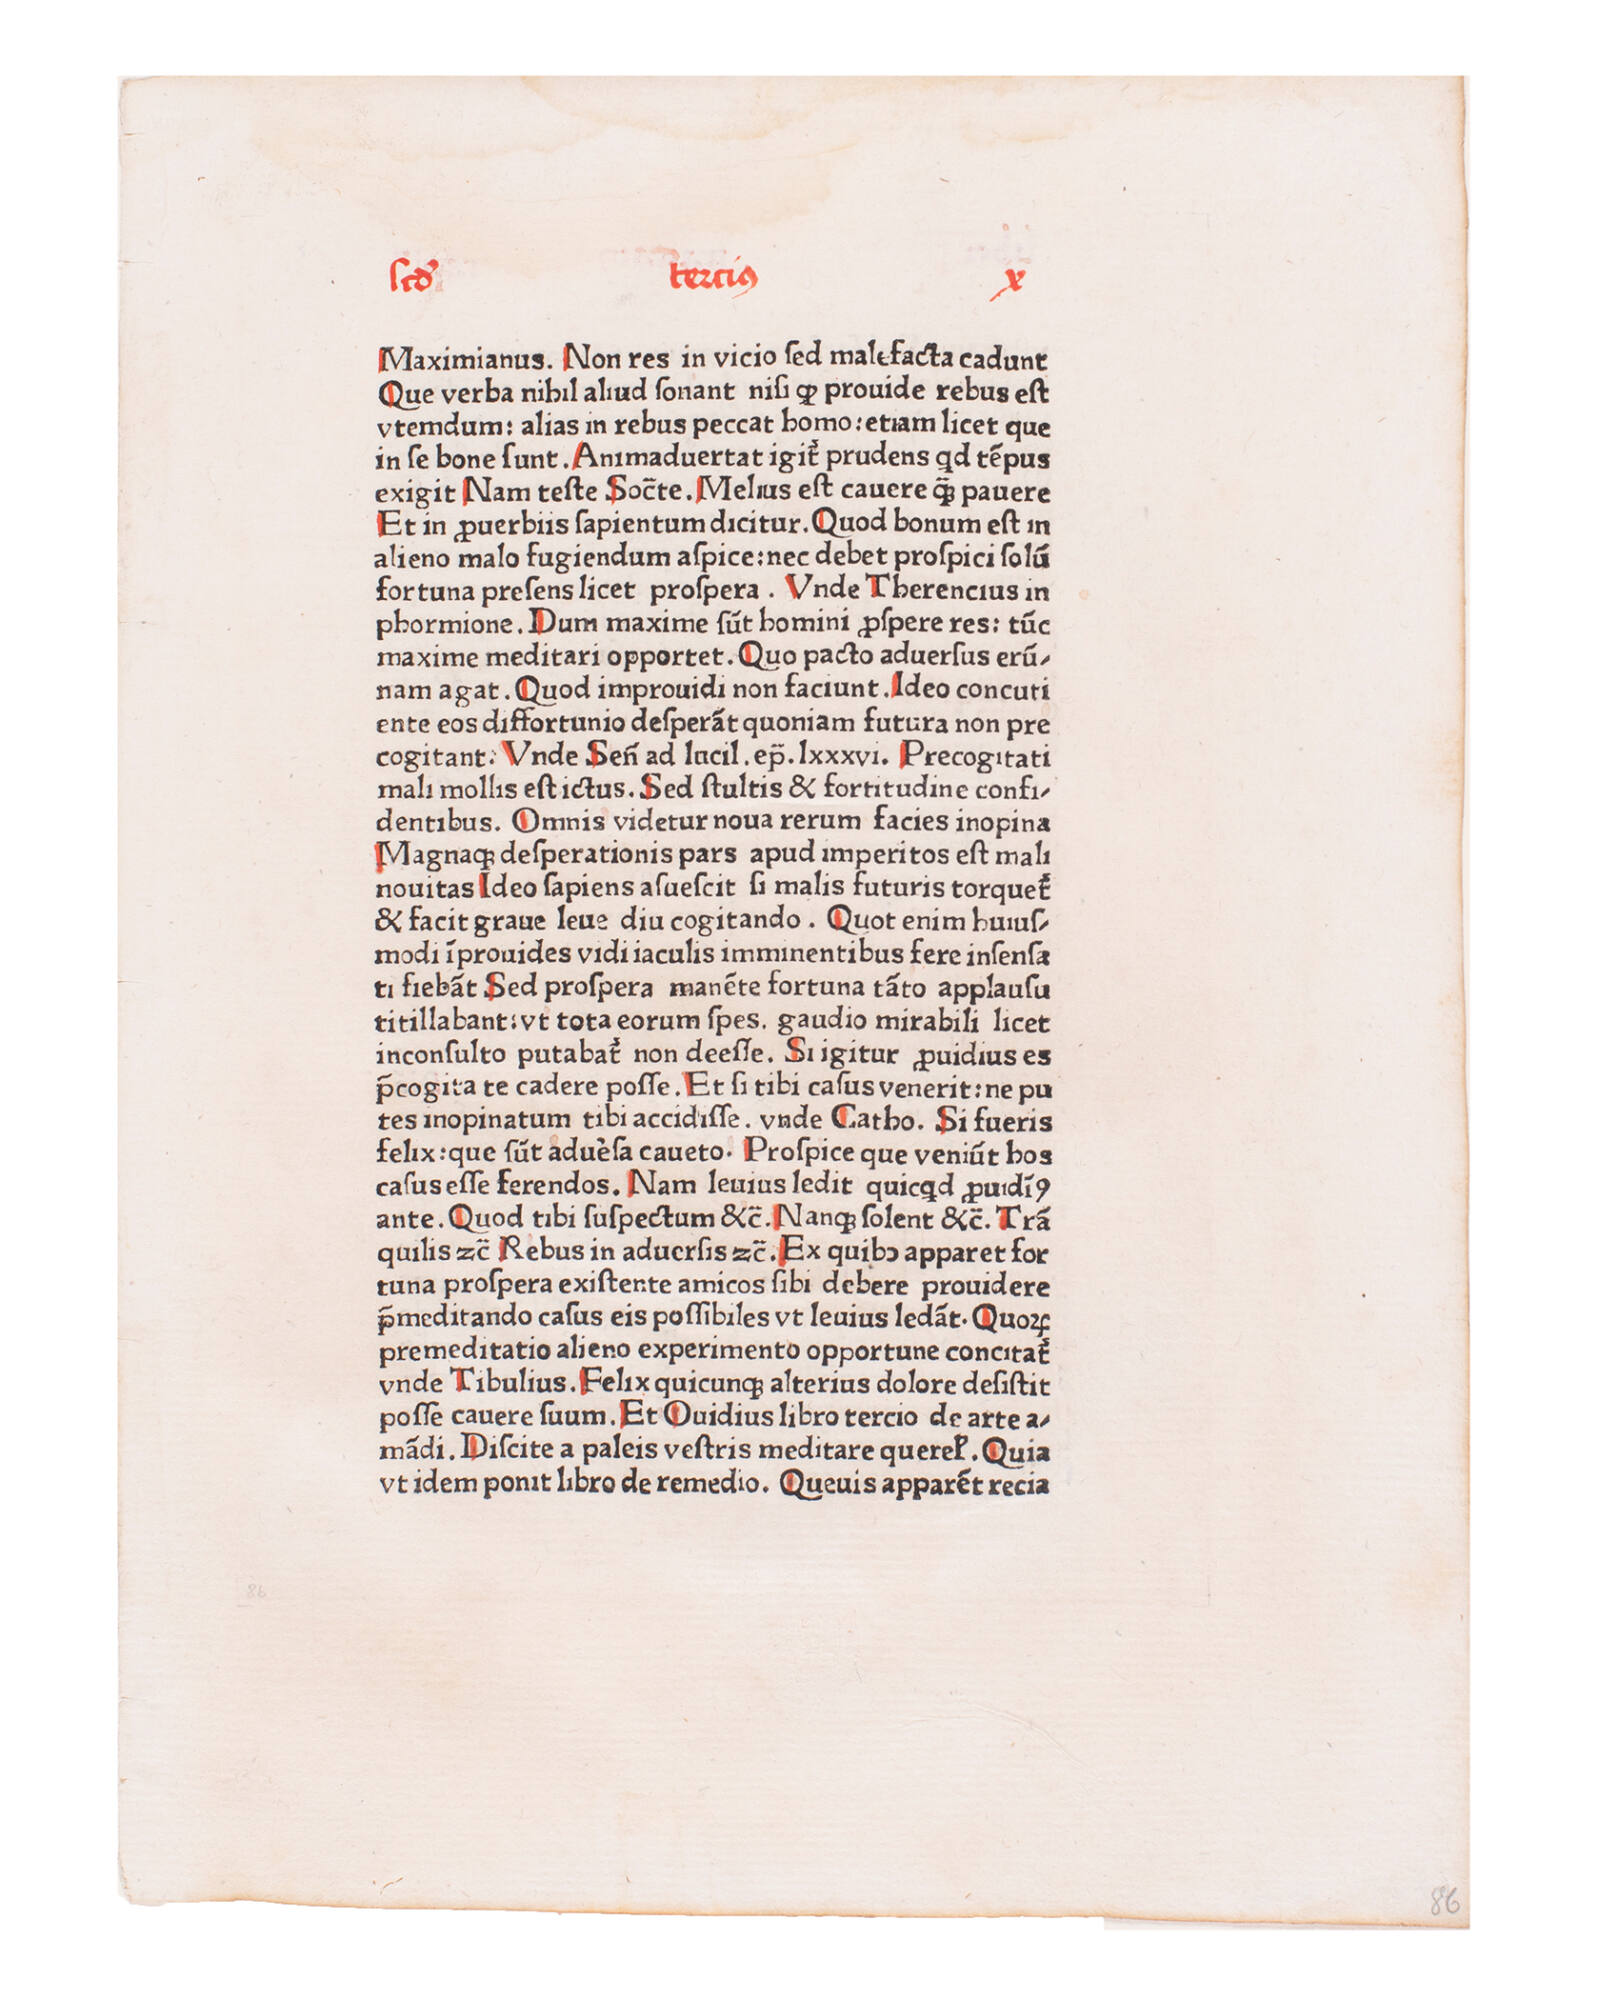 scd̓ tercius x
Maximianus. Non res in vicio ſed malefacta cadunt
Que verba nihil aliud ſonant niſi ꝙ prouide rebus eſt
vtemdum: alias in rebus peccat homo: etiam licet que
in ſe bone ſunt. Animaduertat igit̉ prudens qd tēpus
exigit Nam teſte Soc̄te. Melius eſt cauere q̄ꝫ pauere
Et in ꝓuerbiis ſapientum dicitur. Quod bonum eſt in
alieno malo fugiendum aſpice: nec debet proſpici ſolū
fortuna preſens licet proſpera. Vnde Therencius in
phormione. Dum maxime ſūt homini ꝓſpere res: tūc
maxime meditari opportet. Quo pacto aduerſus erū⸗
nam agat. Quod improuidi non faciunt. Ideo concuti
ente eos diffortunio deſperāt quoniam futura non pre
cogitant: Vnde Señ ad lucil. ep̄. lxxxvi. Precogitati
mali mollis eſt ictus. Sed ſtultis & fortitudine confi⸗
dentibus. Omnis videtur noua rerum facies inopina
Magnaqꝫ deſperationis pars apud imperitos eſt mali
nouitas Ideo ſapiens aſueſcit ſi malis futuris torquet̉
& facit graue leue diu cogitando. Quot enim huiuſ⸗
modi īprouides vidi iaculis imminentibus fere inſenſa
ti fiebāt Sed proſpera manēte fortuna tāto applauſu
titillabant: vt tota eorum ſpes. gaudio mirabili licet
inconſulto putabat̉ non deeſſe. Si igitur ꝓuidius es
p̄cogita te cadere poſſe. Et ſi tibi caſus venerit: ne pu
tes inopinatum tibi accidiſſe. vnde Catho. Si fueris
felix: que ſūt aduẻſa caueto. Proſpice que veniūt hos
caſus eſſe ferendos. Nam leuius ledit quicqd ꝓuidīꝰ
ante. Quod tibi ſuſpectum &c̄. Nanqꝫ ſolent &c̄. Trā
quilis ⁊c̄ Rebus in aduerſis ⁊c̄. Ex quibꝫ apparet for
tuna proſpera exiſtente amicos ſibi debere prouidere
p̄meditando caſus eis poſſibiles vt leuius ledāt. Quoꝝ
premeditatio alieno experimento opportune concitat̉
vnde Tibulius. Felix quicunqꝫ alterius dolore deſiſtit
poſſe cauere ſuum. Et Ouidius libro tercio de arte a⸗
mādi. Diſcite a paleis veſtris meditare querel̉. Quia
vt idem ponit libro de remedio. Queuis apparēt recia
86
86